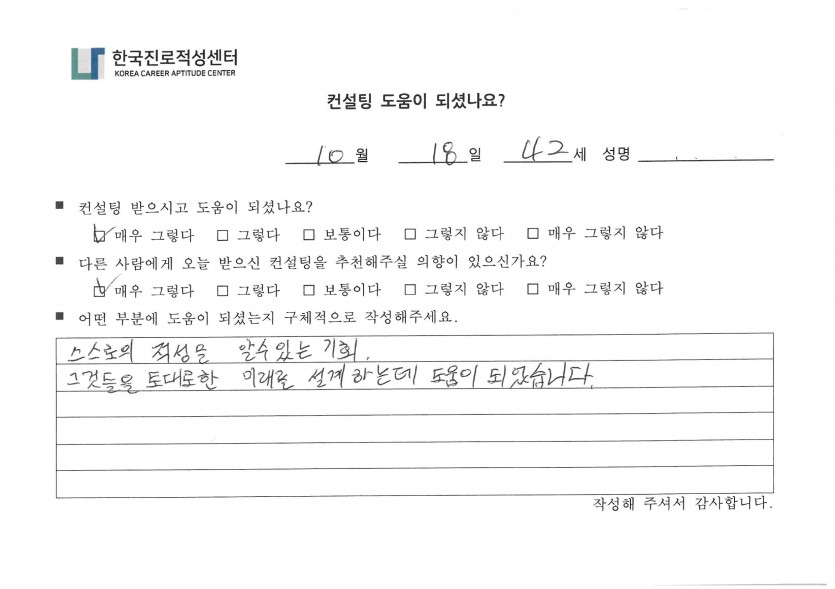 한국진로적성센터
KOREA CAREER APTITUDE CENTER
컨설팅 도움이 되셨나요?
10 월 18 일 42 세 성명
■ 컨설팅 받으시고 도움이 되셨나요?
☑ 매우 그렇다 □ 그렇다 □ 보통이다 □ 그렇지 않다 □ 매우 그렇지 않다
■ 다른 사람에게 오늘 받으신 컨설팅을 추천해주실 의향이 있으신가요?
☑ 매우 그렇다 □ 그렇다 □ 보통이다 □ 그렇지 않다 □ 매우 그렇지 않다
■ 어떤 부분에 도움이 되셨는지 구체적으로 작성해주세요.
스스로의 적성을 알수있는 기회.
그것들을 토대로한 미래를 설계하는데 도움이 되었습니다.
작성해 주셔서 감사합니다.